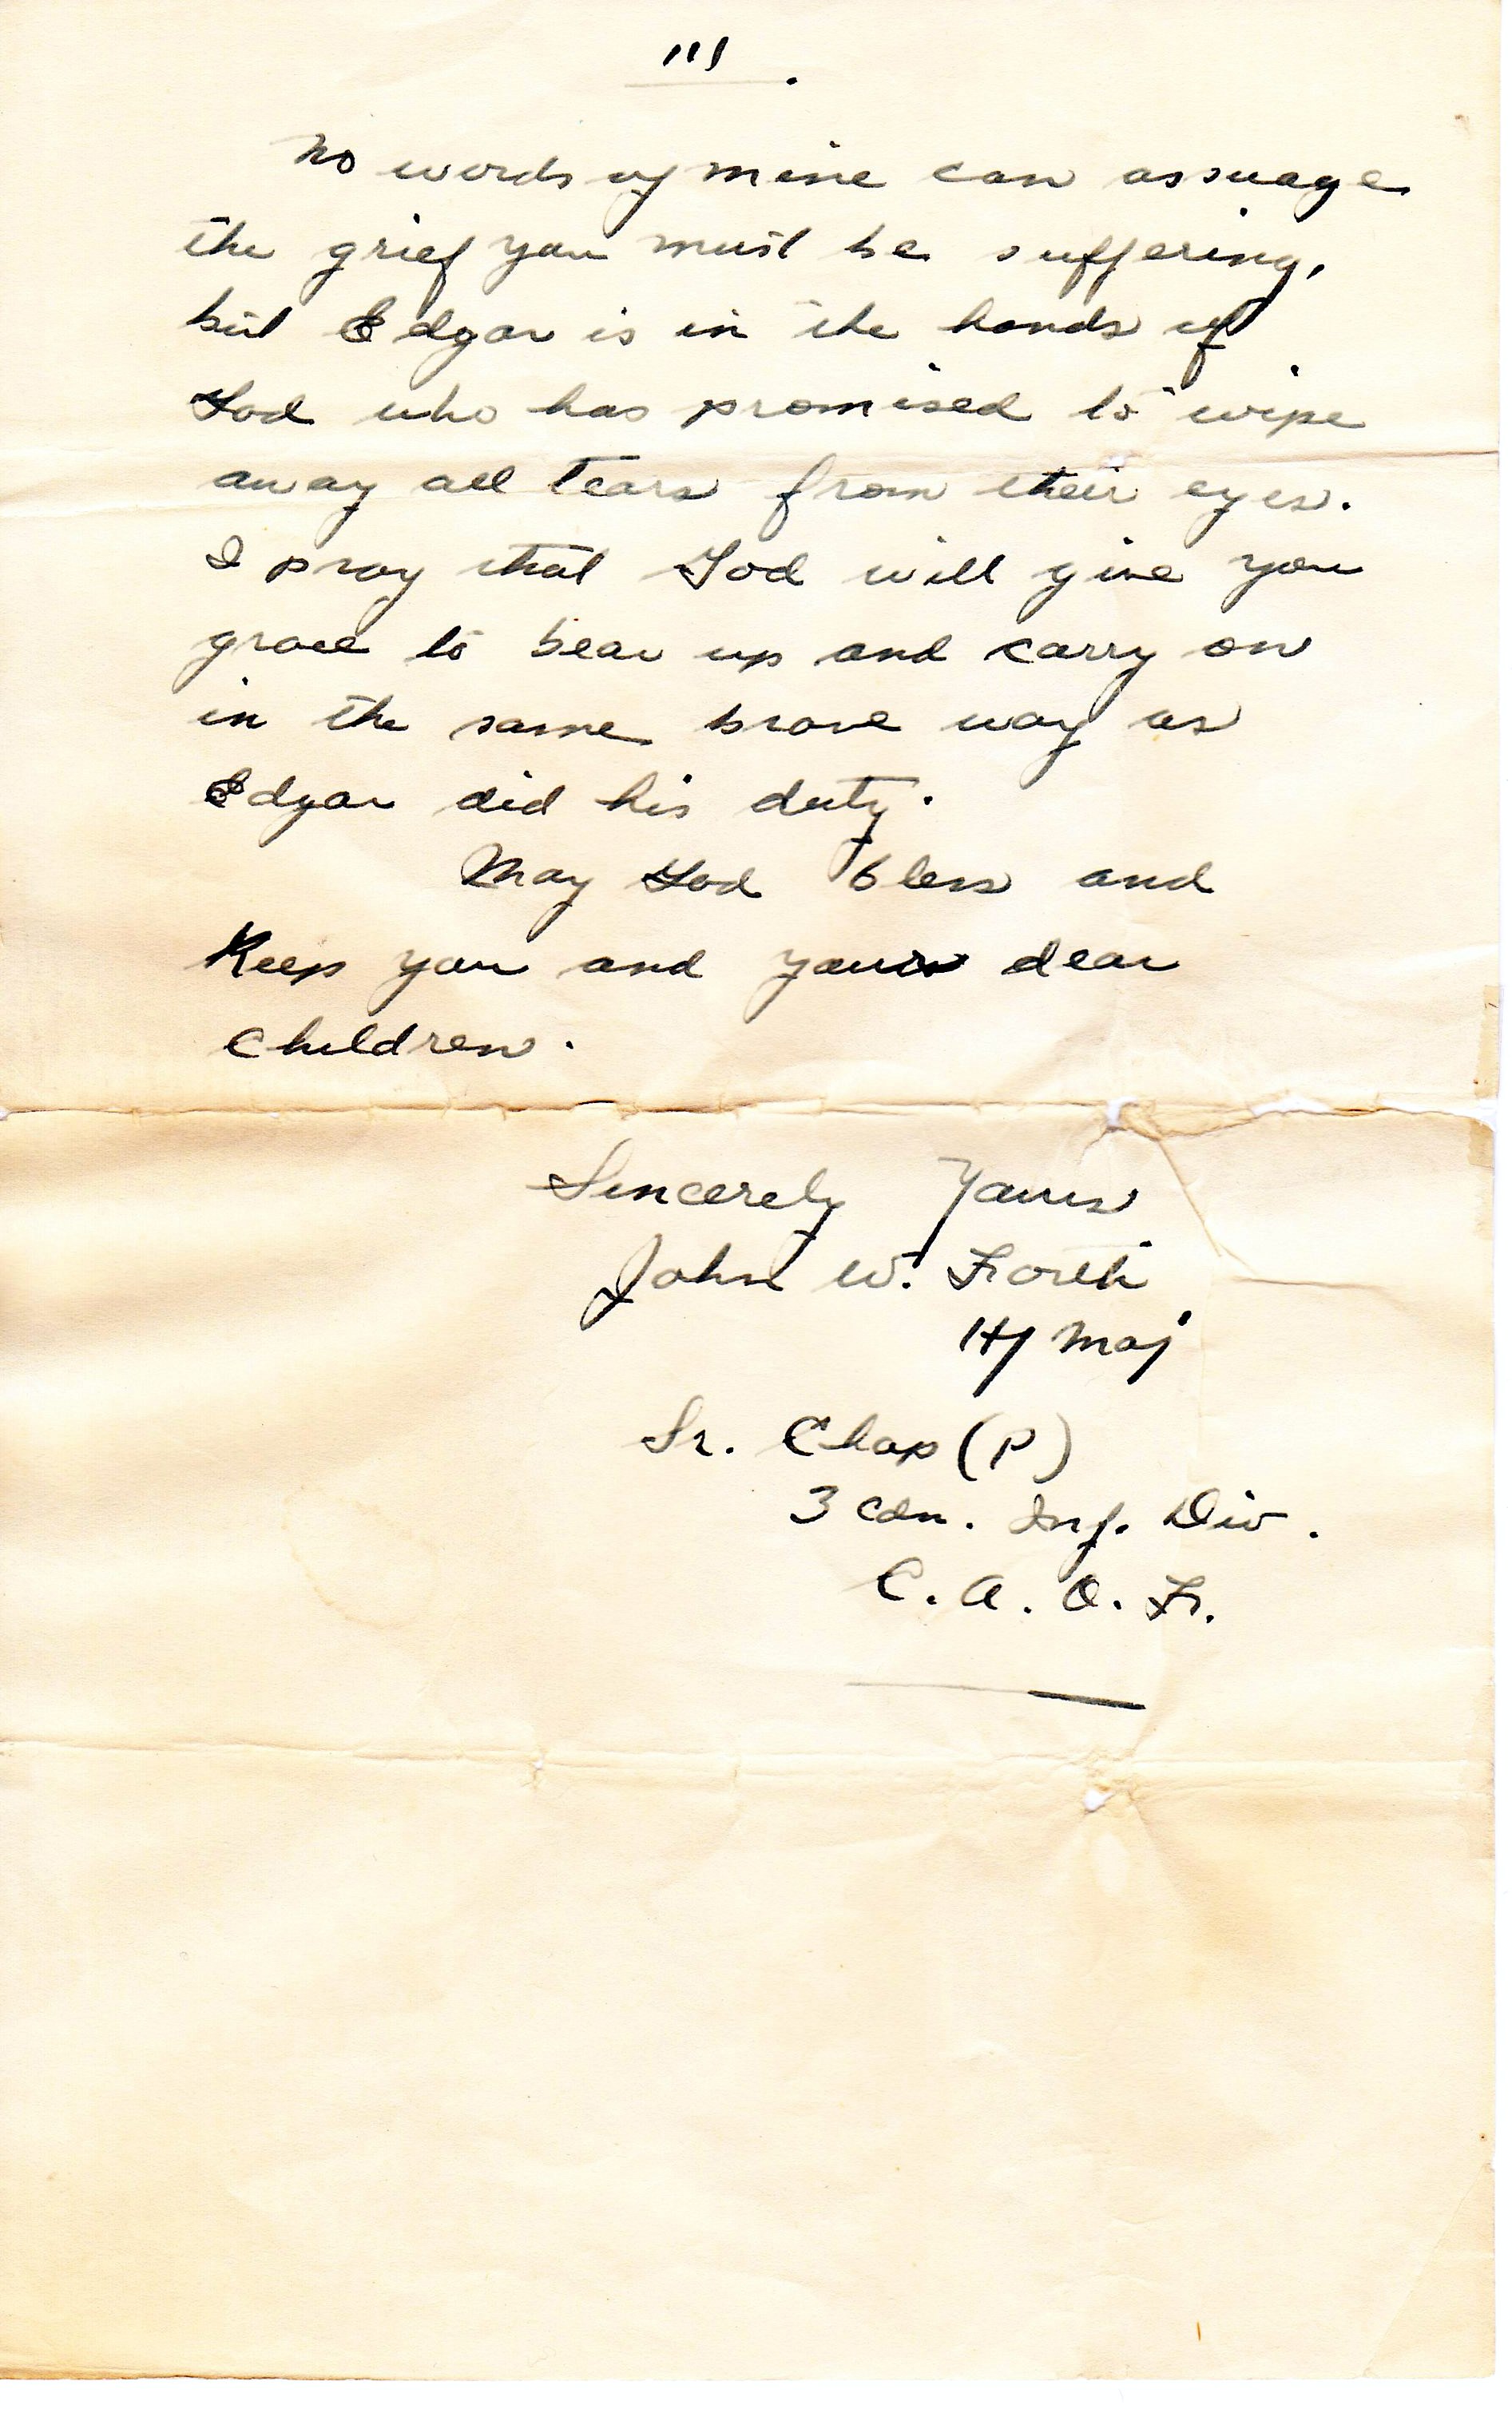 III.
No words of mine can assuage
the grief you must be suffering,
but Edgar is in the hands of
God who has promised to wipe
away all tears from their eyes.
I pray that God will give you
grace to bear up and carry on
in the same brave way as
Edgar did his duty.
May God bless and
Keep you and your dear
Children.
Sincerely Yours
John W. Forth
H/Maj
Sr. Chap (P)
3 Cdn. Inf. Div.
C. A. O. F.